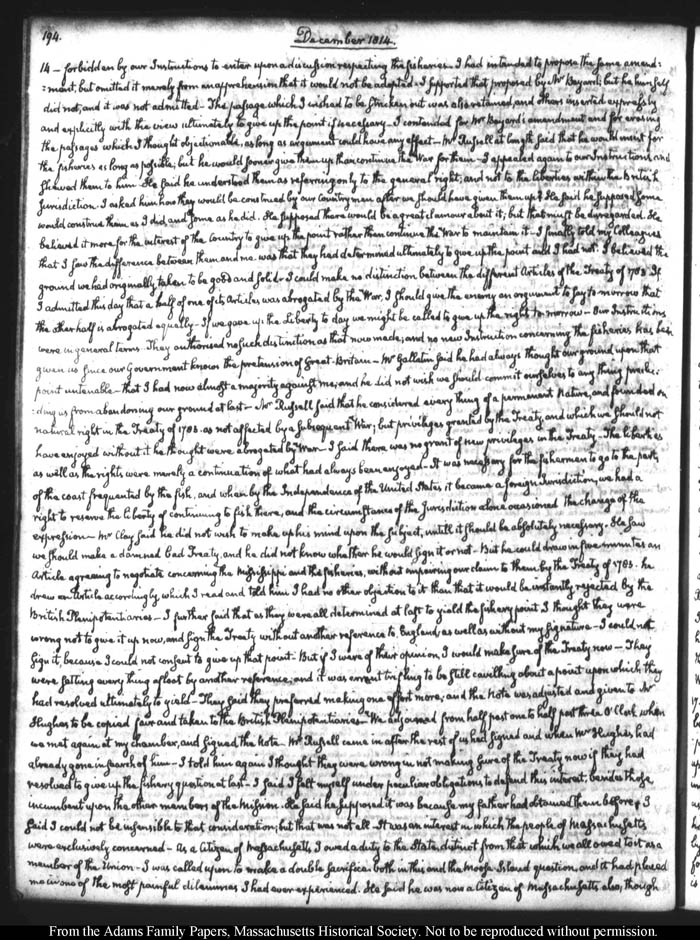 194.
December 1814.
14 – forbidden by our Instructions to enter upon a discussion respecting the fisheries – I had intended to propose the same amend=
=ment, but omitted it merely from an apprehension that it would not be adopted – I supported that proposed by Mr Bayard; but he himself
did not, and it was not admitted – The passage which I wished to be stricken out was also retained, and others inserted expressly
and explicitly with the view ultimately to give up the point if necessary – I contended for Mr Bayard's amendment and for erasing
the passages which I thought objectionable, as long as argument could have any effect – Mr Russell at length said that he would insist for
the fisheries as long as possible; but he would sooner give them up than continue the War for them – I appealed again to our Instructions, and
shewed them to him – He said he understood them as referring only to the general right, and not to the liberties within the British
Jurisdiction. I asked him how they would be construed by our Countrymen after we should have given them up? He said he supposed some
would construe them as I did, and some as he did. He supposed there would be a great clamour about it; but that must be disregarded. He
believed it more for the interest of the Country to give up the point rather than continue the War to maintain it – I finally told my Colleagues
that I saw the difference between them and me was that they had determined ultimately to give up the point and I had not. I believed the
ground we had originally taken to be good and solid – I could make no distinction between the different Articles of the Treaty of 1783. If
I admitted this day that a half of one of its Articles was abrogated by the War, I should give the enemy an argument to say to-morrow that
the other half is abrogated equally – If we gave up the Liberty to day we might be called to give up the right to morrow – Our Instructions
were in general terms. They authorised no such distinction as that now made; and no new Instruction concerning the fisheries has been
given us since our Government knows the pretension of Great-Britain – Mr Gallatin said he had always thought our ground upon that
point untenable – that I had now almost a majority against me; and he did not wish we should commit ourselves to any thing preclu=
=ding us from abandoning our ground at last – Mr Russell said that he considered every thing of a permanent Nature, and founded on
natural right in the Treaty of 1783. as not affected by a subsequent War; but privileges granted by the Treaty, and which we should not
have enjoyed without it he thought were abrogated by War – I said there was no grant of new privileges in the Treaty – The liberties
as well as the rights were merely a continuation of what had always been enjoyed – It was necessary for the fishermen to go to the parts
of the coast frequented by the fish, and when by the Independence of the United States it became a foreign Jurisdiction, we had a
right to reserve the liberty of continuing to fish there, and the circumstance of the Jurisdiction alone occasioned the change of the
expression – Mr Clay said he did not wish to make up his mind upon the subject, untill it should be absolutely necessary. He saw
we should make a damned bad Treaty, and he did not know whether he would sign it or not – But he could draw in five minutes an
Article agreeing to negotiate concerning the Mississippi and the fisheries, without impairing our claim to them by the Treaty of 1783. he
drew an Article accordingly, which I read and told him I had no other objection to it than that it would be instantly rejected by the
British Plenipotentiaries – I further said that as they were all determined at last to yield the fishery point I thought they were
wrong not to give it up now, and sign the Treaty without another reference to England, as well as without my Signature – I could not
sign it, because I could not consent to give up that point – But if I were of their opinion I would make sure of the Treaty now – They
were setting every thing afloat by another reference; and it was errant trifling to be still cavilling about a point upon which they
had resolved ultimately to yield – They said they preferred making one effort more; and the Note was adjusted and given to Mr
Hughes to be copied fair and taken to the British Plenipotentiaries – We adjourned from half past one to half past three O'Clock, when
we met again at my chamber, and signed the Note. Mr Russell came in after the rest of us had signed and when Mr Hughes had
already gone in search of him – I told him again I thought they were wrong in not making sure of the Treaty now if they had
resolved to give up the fishery question at last – I said I felt myself under peculiar obligations to defend this interest, besides those
incumbent upon the other members of the Mission. He said he supposed it was because my father had obtained them before. I
said I could not be insensible to that consideration; but that was not all – It was an interest in which the people of Massachusetts
were exclusively concerned – As a Citizen of Massachusetts I owed a duty to the State, distinct from that which we all owed to it as a
member of the Union – I was called upon to make a double sacrifice both in this and the Moose Island question, and it had placed
me in one of the most painful dilemmas I had ever experienced. He said he was now a Citizen of Massachusetts also, though
From the Adams Family Papers, Massachusetts Historical Society. Not to be reproduced without permission.